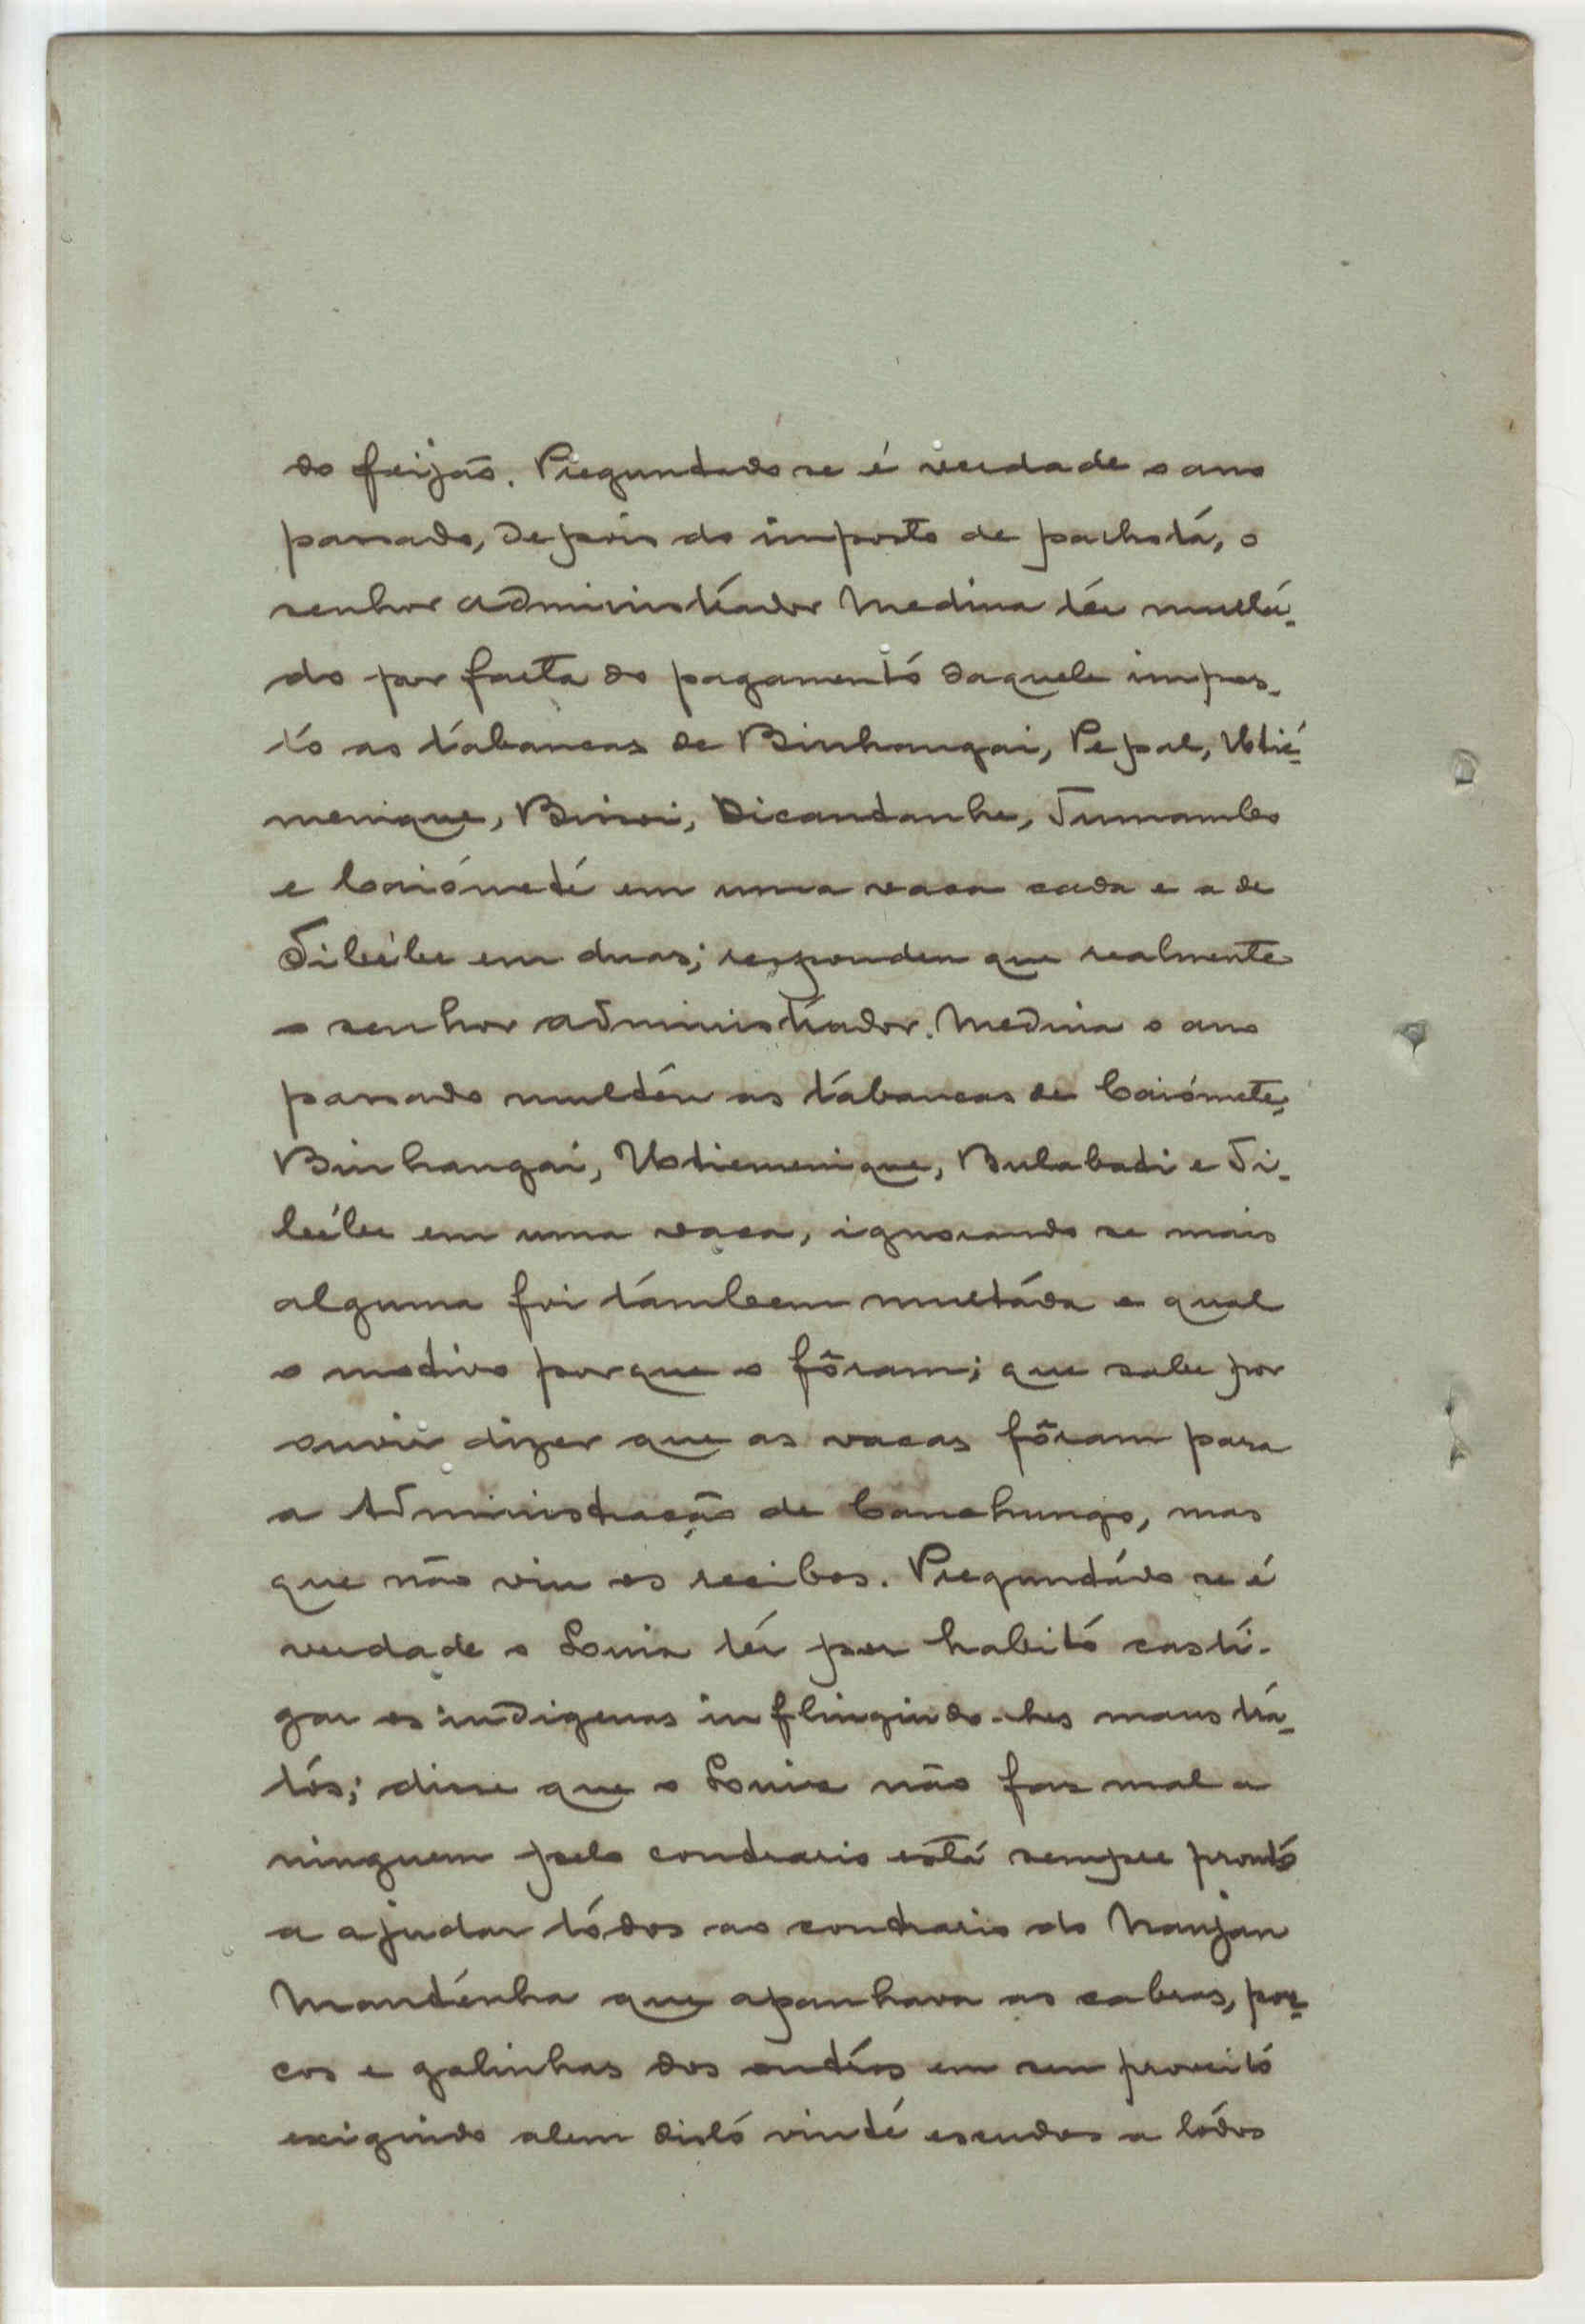 do feijão. Preguntado se é verdade o ano
passado, depois do imposto de palhota, o
senhor administrador Medina ter multa-
do por falta do pagamento daquele impos-
to as tabancas de Binhangai, Pepal, Utié-
menique, Binoi, Dicandanhe, Tumambo
e Caiómete em uma vaca cada e a de
Tibébe em duas; respondeu que realmente
o senhor administrador Medina o ano
passado multou as tabancas de Caiómete,
Binhangai, Utiemenique, Bulabadi e Ti-
bébe em uma vaca, ignorando se mais
alguma foi tambem multada e qual
o motivo porque o fôram; que sabe por
ouvir dizer que as vacas fôram para
a Administração de Canchungo, mas
que não viu os recibos. Preguntado se é
verdade o Luis ter por habito casti-
gar os indigenas inflingindo-lhes maus tra-
tos; disse que o Luis não faz mal a
ninguem pelo contrario está sempre pronto
a ajudar todos ao contrario do Nanjan
Mandenha que apanhava as cabras, por-
cos e galinhas dos outros em seu proveito
exigindo alem disto vinte escudos a todos